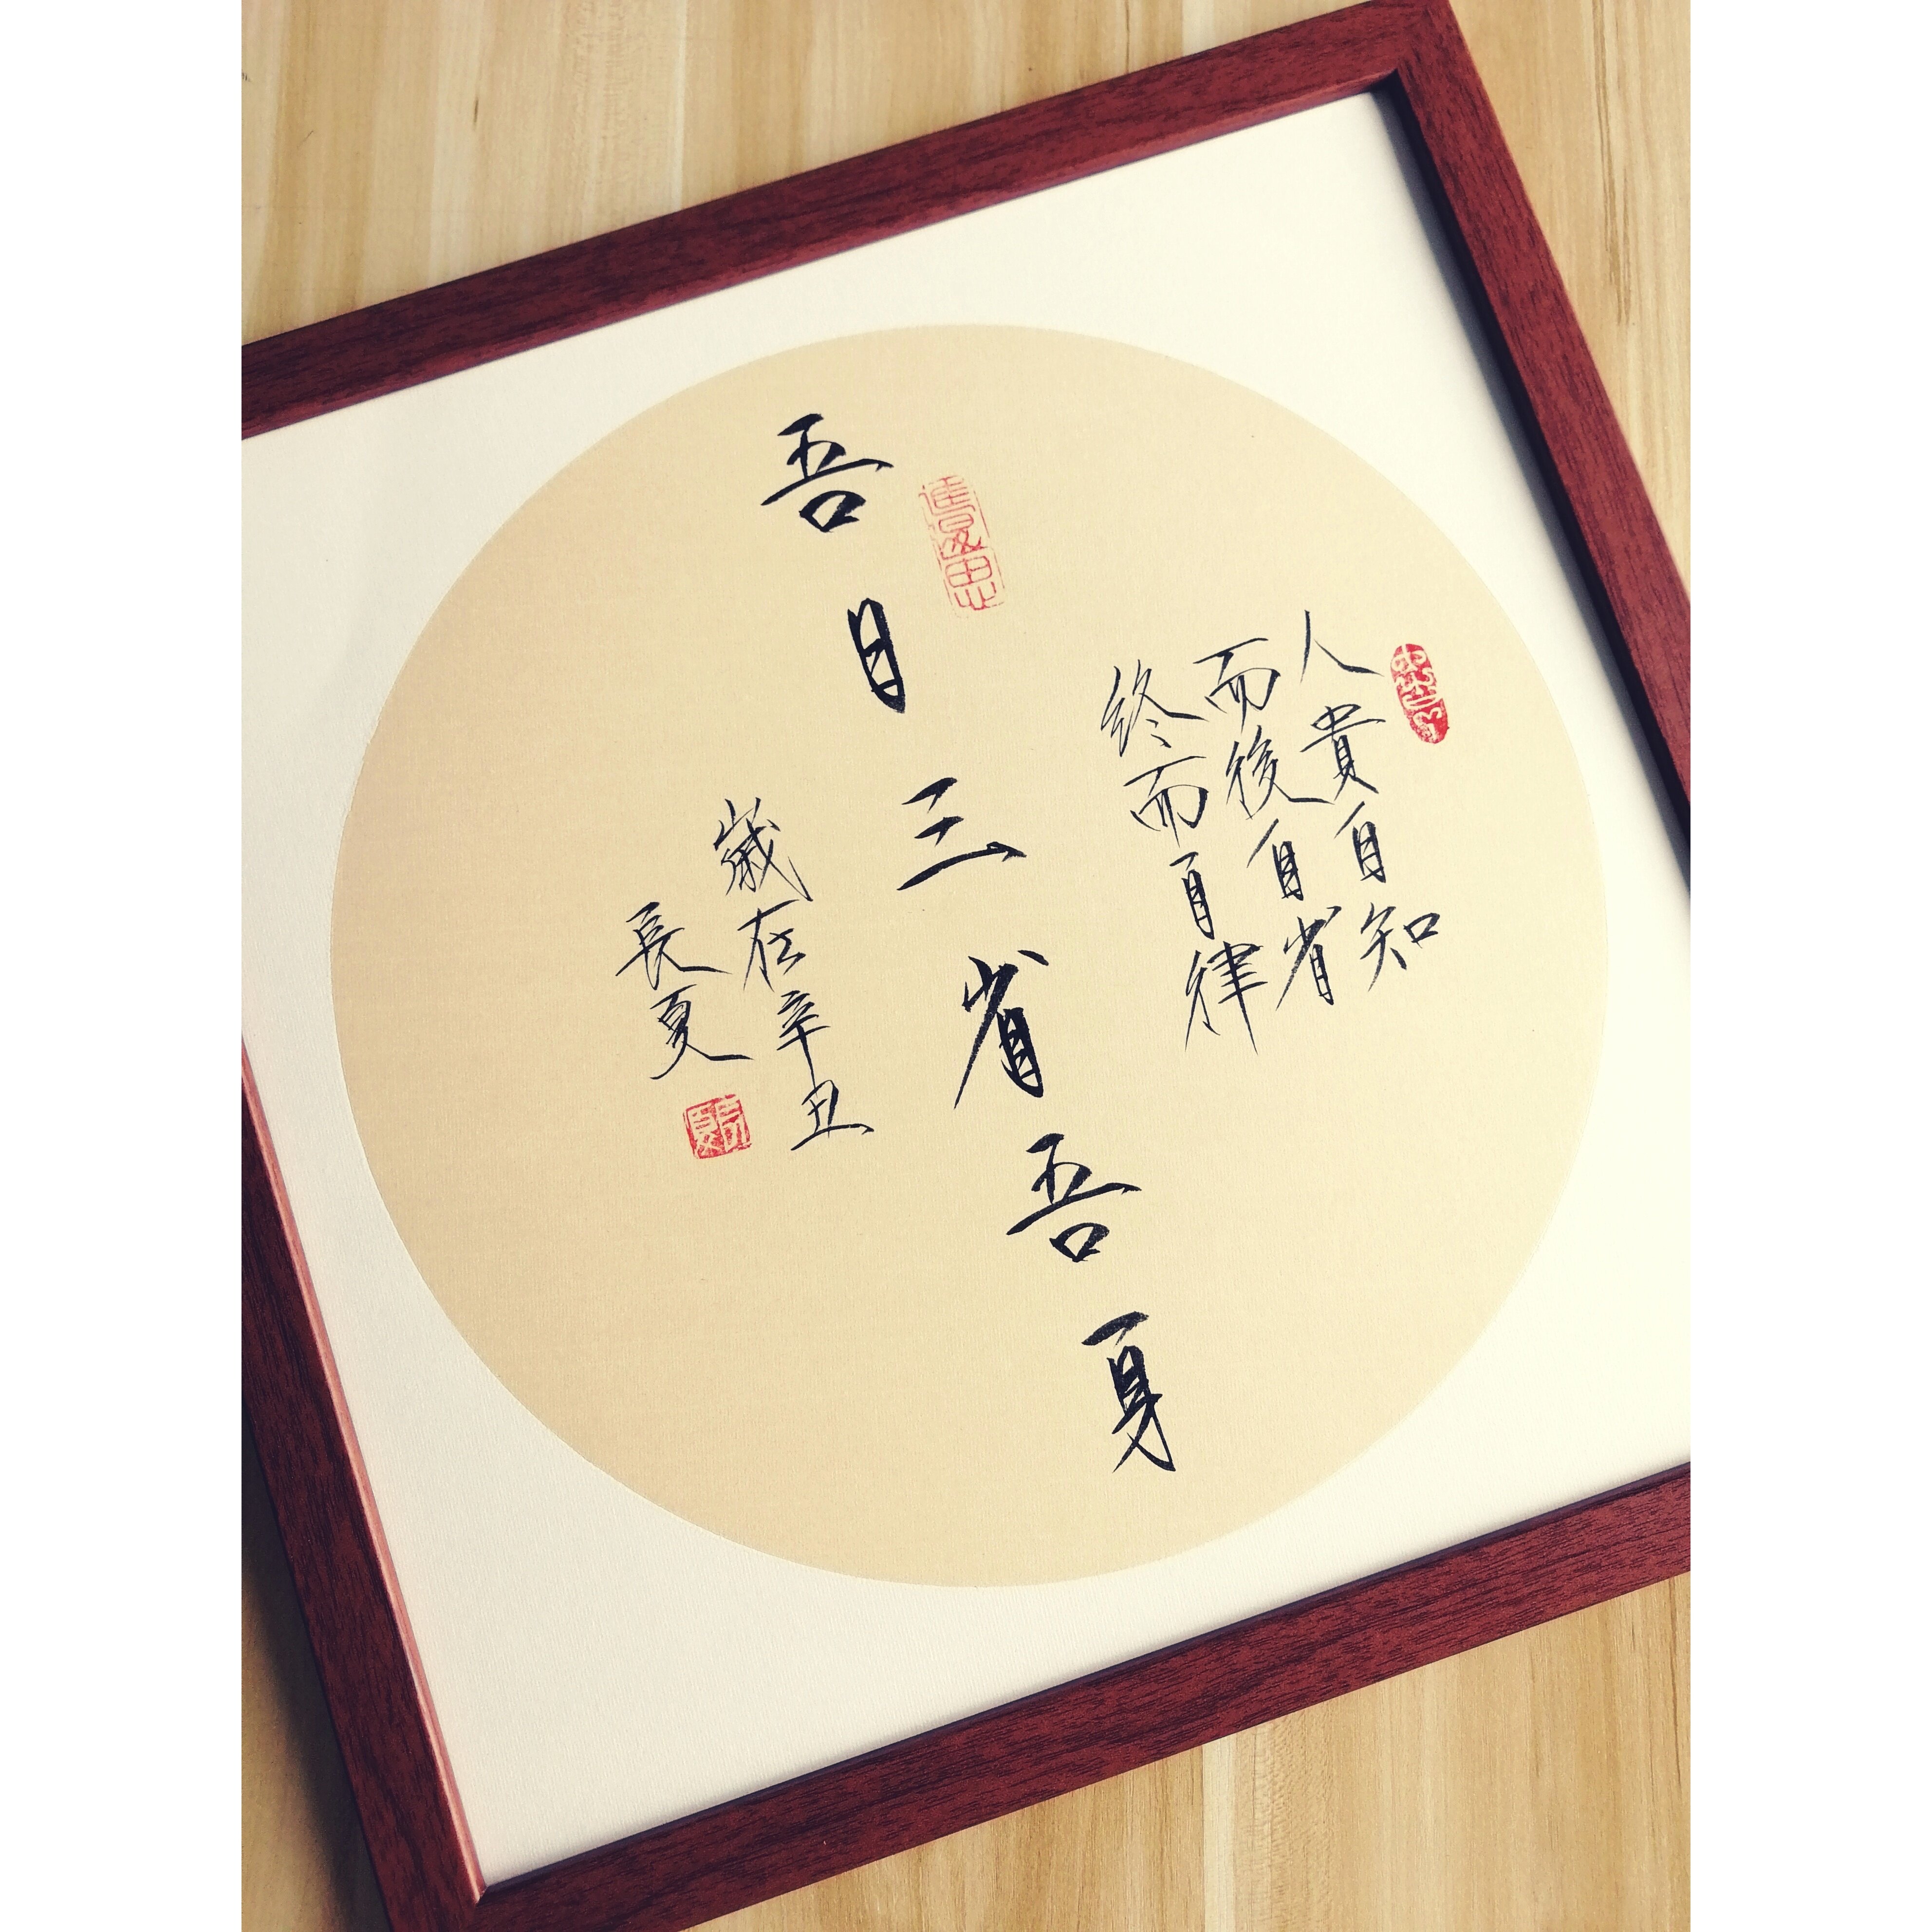 人貴自知
而後自省
終而自律
吾日三省吾身
歲在辛丑
長夏